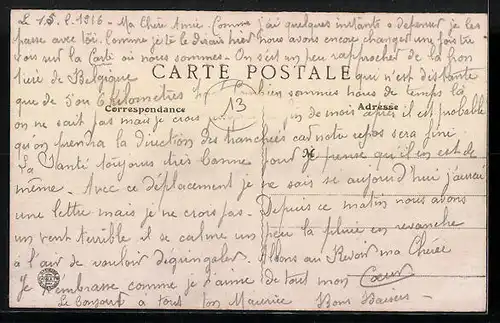 Le 15. 2. 1916 - Ma Chère Amie. Comme j'ai quelques instants a depenser je les
passe avec toi. Comme je te le disais hier nous avons encore changer un fois
vois sur la Carte où nous sommes. On s'est un peu rapprocher de la fron
tière de Belgique qui n'est distante
CARTE POSTALE
que de 5 ou kilomètres bien sommes nous de temps là
13
on ne sait pas mais je crois de mois après il est probable
Correspondance
Adresse
qu'on prendra la direction des tranchées car notre repos sera fini
La Santé toujours très bonne pour je pense qu'il en est de
M
même. Avec ce déplacement je ne sais si aujourd'hui j'aurai
une lettre mais je ne crois pas. Depuis ce matin nous avons
un vent terrible il se calme un peu la pluie en revanche
à l'air de vouloir dégringoler. Allons au Revoir ma Chérie
Je t'embrasse comme je t'aime de tout mon Cœur
Le Bonjour à tous ton Maurice Bons Baisers